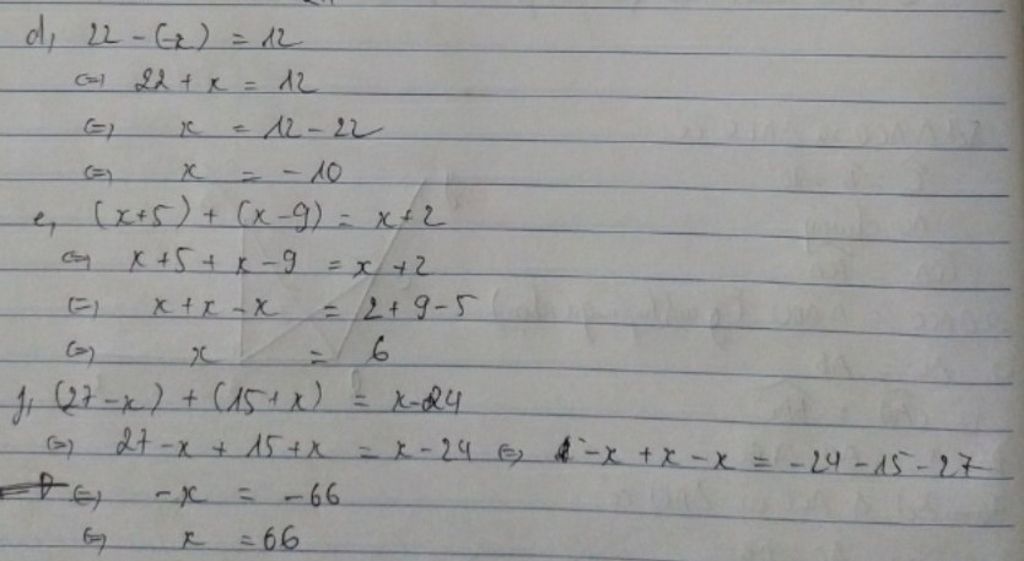 d, 22 - (-x) = 12
<=> 22 + x = 12
<=> x = 12 - 22
<=> x = - 10
e, (x+5) + (x-9) = x+2
<=> x+5 + x-9 = x+2
<=> x+x-x = 2+9-5
<=> x = 6
f, (27-x) + (15+x) = x-24
<=> 27-x + 15+x = x-24 <=> -x+x-x = -24-15-27
<=> -x = -66
<=> x = 66